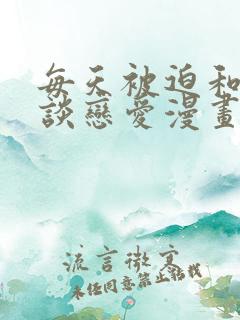 每天被迫和
談戀愛漫畫
流言微寬
未任同意禁止转载